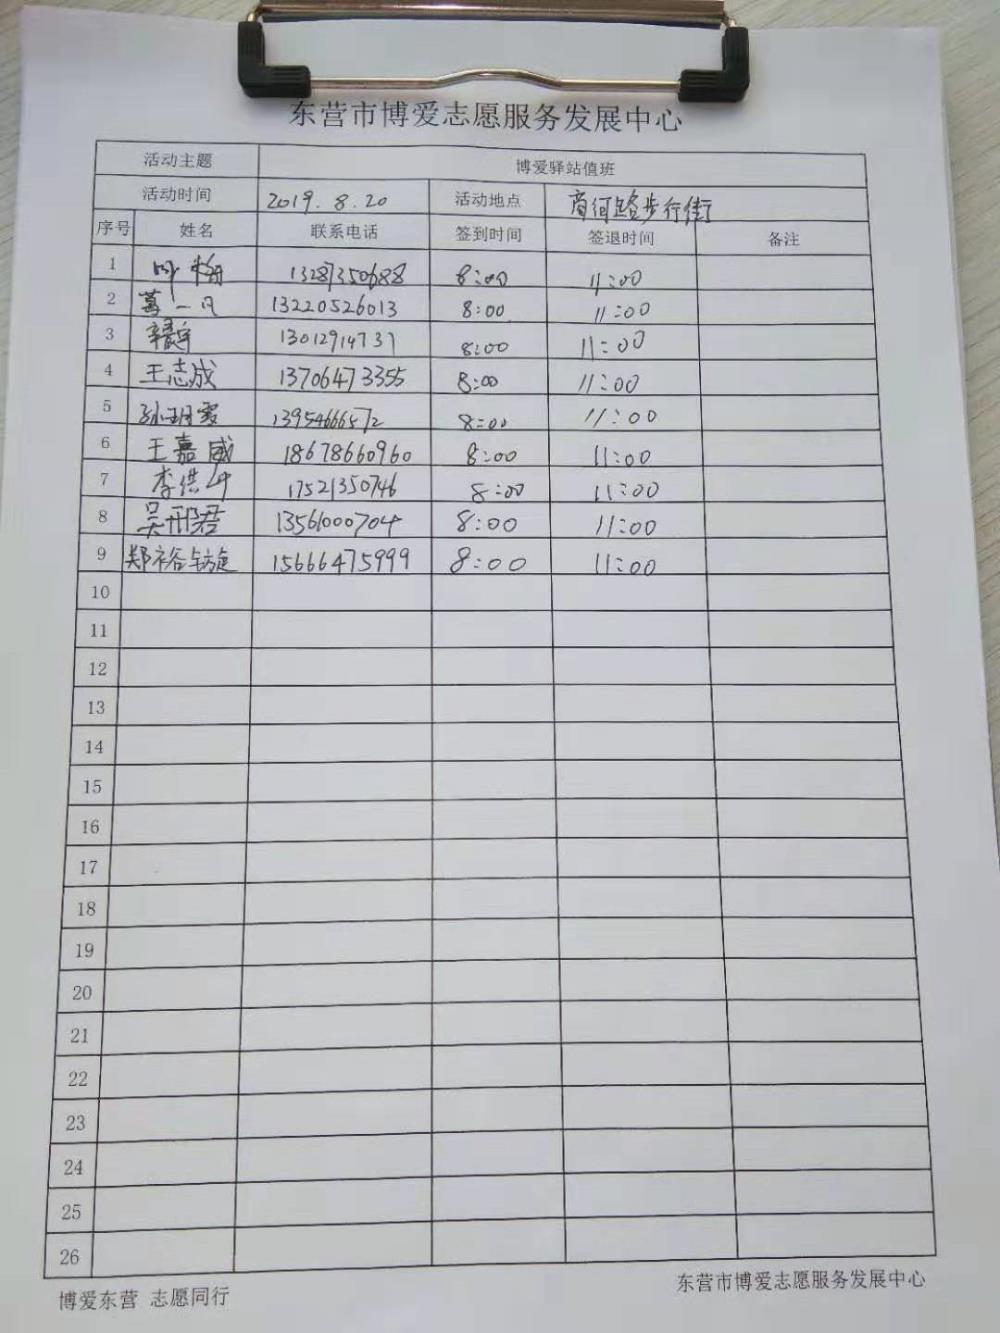 东营市博爱志愿服务发展中心
活动主题 博爱驿站值班
活动时间 2019.8.20 活动地点 商河路步行街
序号 姓名 联系电话 签到时间 签退时间 备注
1 13287350688 8:00 11:00
2 葛一凡 13220526013 8:00 11:00
3 13012914737 8:00 11:00
4 王志成 13706473355 8:00 11:00
5 孙玥雯 13954666572 8:00 11:00
6 王嘉威 18678660960 8:00 11:00
7 李浩 17521350746 8:00 11:00
8 吴邢君 13561000704 8:00 11:00
9 郑裕 15666475999 8:00 11:00
10
11
12
13
14
15
16
17
18
19
20
21
22
23
24
25
26
博爱东营 志愿同行 东营市博爱志愿服务发展中心